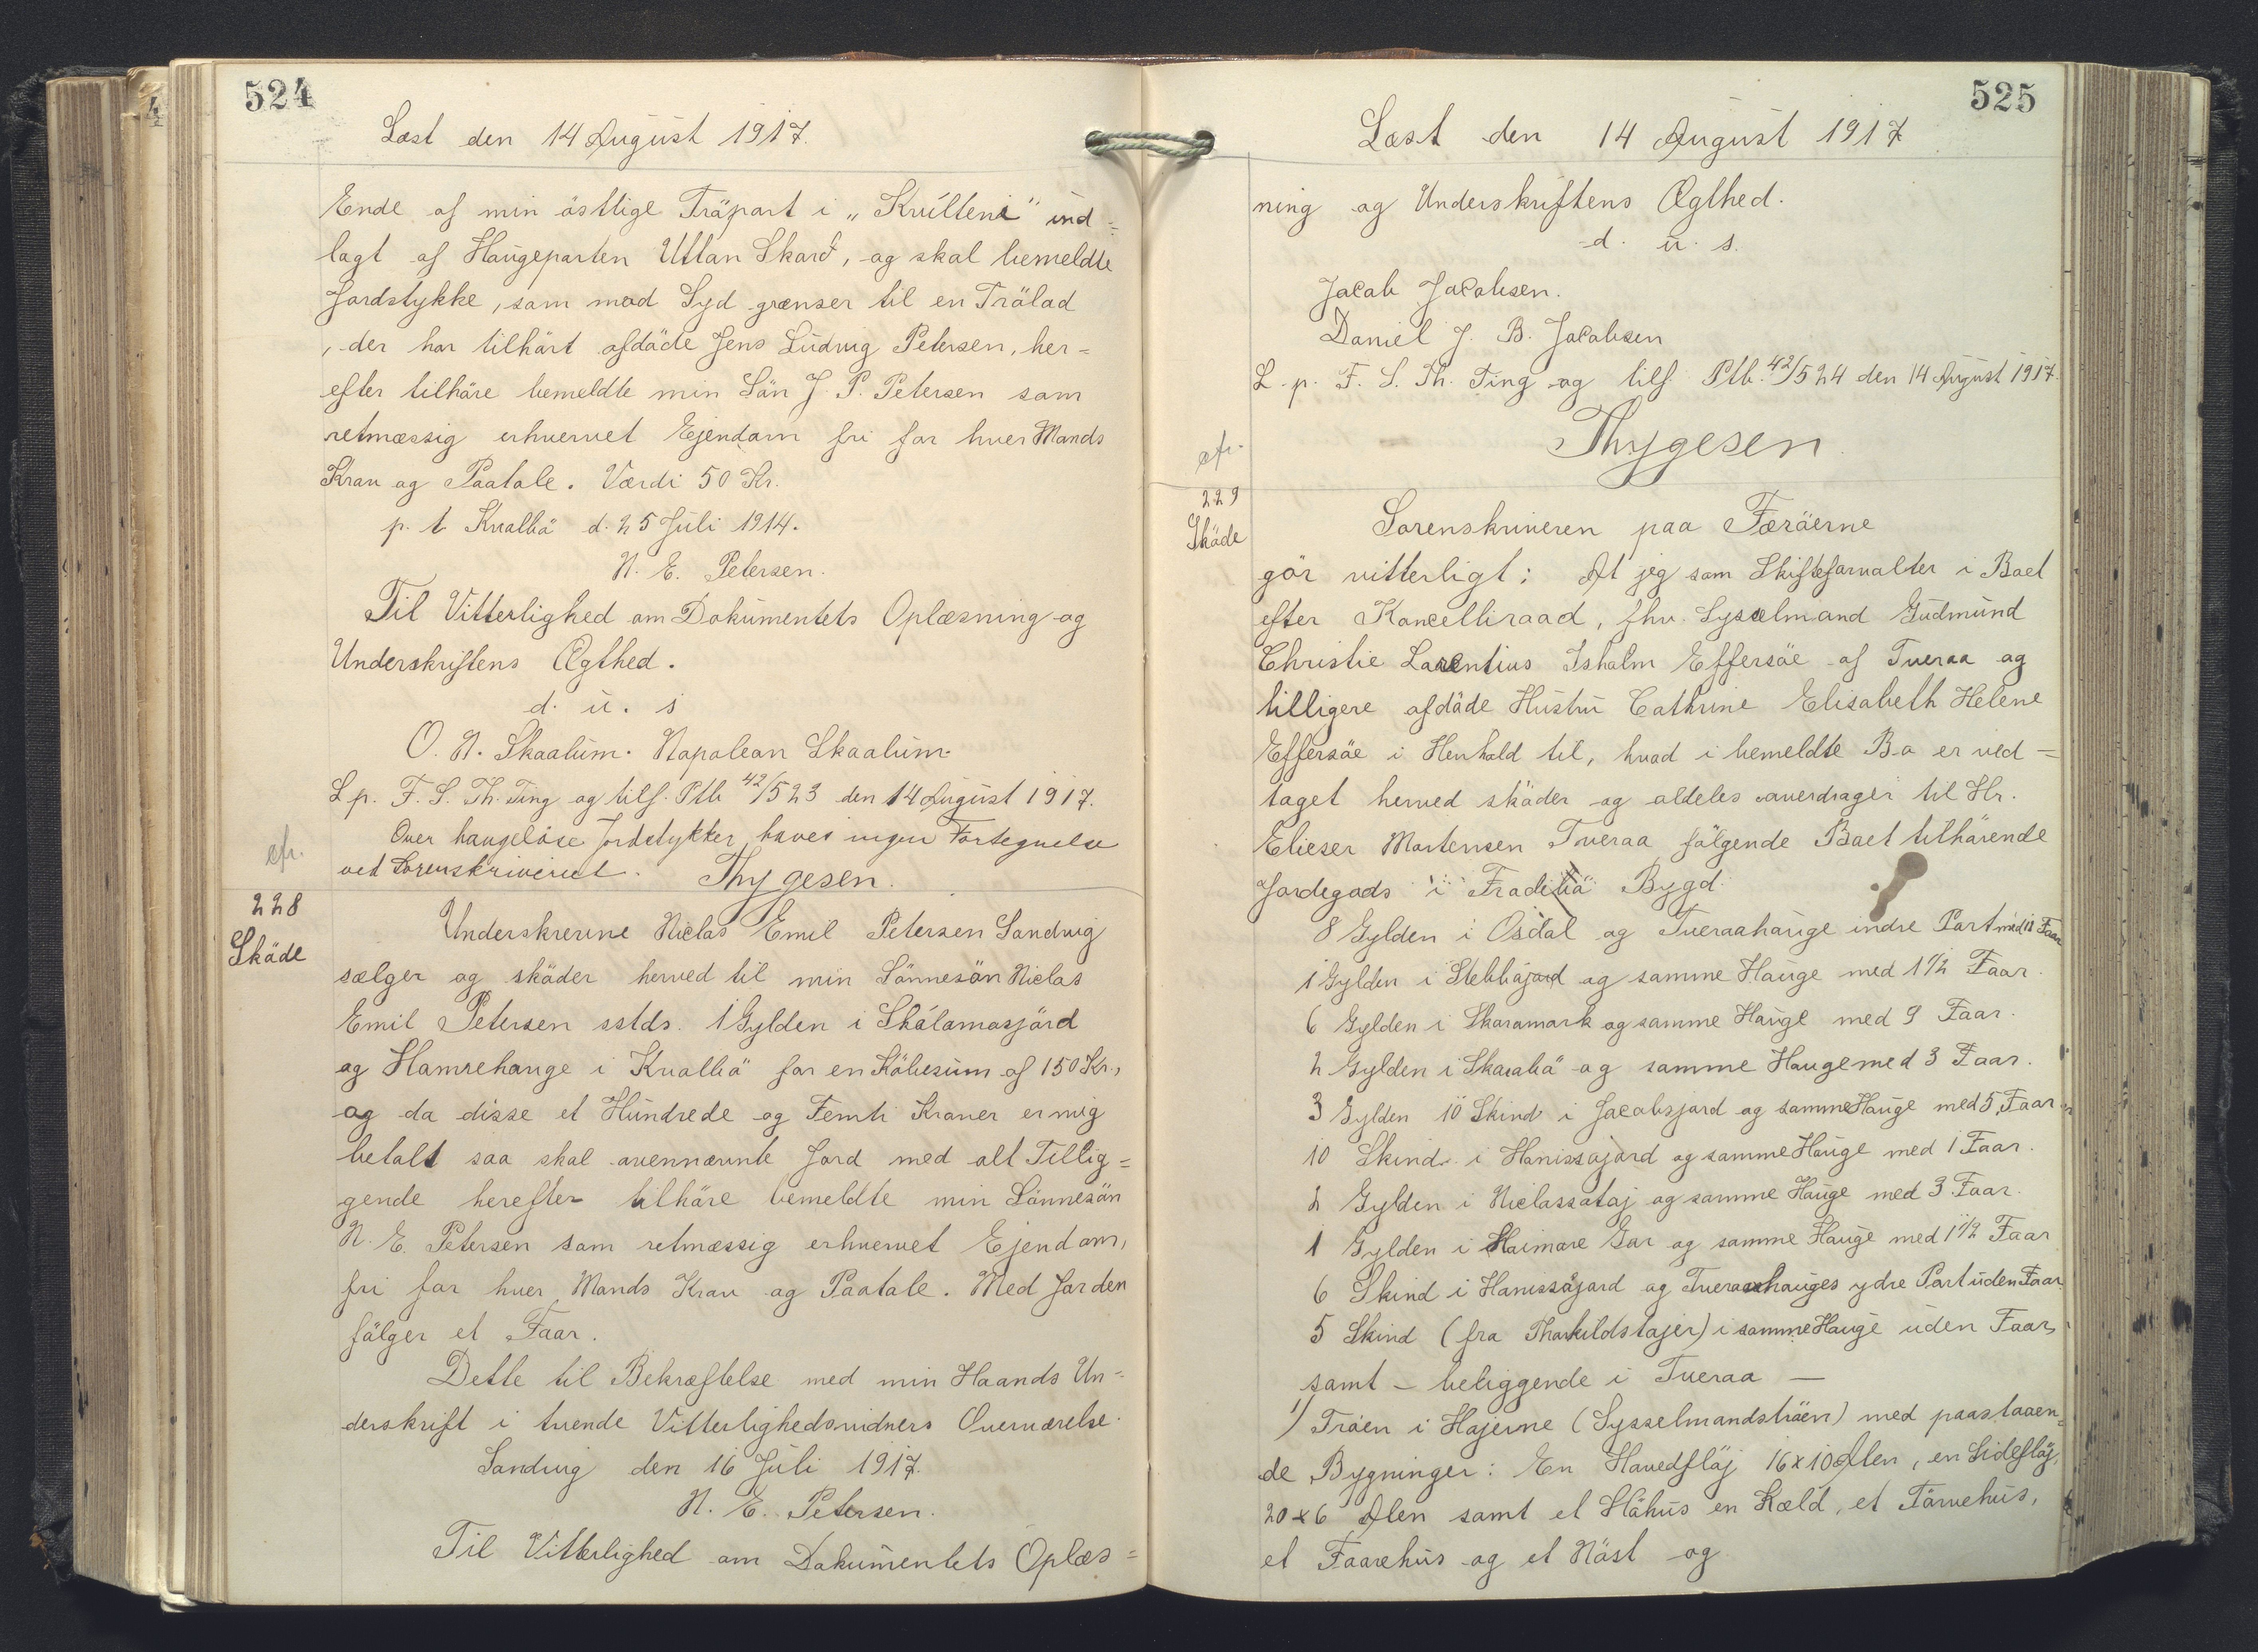 524
Læst den 14 August 1917.
Ende af min östlige Träpart i „Kvilteni" ind=
lagt af Haugeparten Uttan Skard, og skal bemeldte
Jordstykke, som mod Syd grænser til en Trölad
, der har tilhört afdöde Jens Ludvig Petersen, her=
efter tilhöre bemeldte min Sön J. P. Petersen som
retmæssig erhvervet Ejendom fri for hver Mands
Krav og Paatale. Værdi 50 Kr.
p. t. Kvalbö d. 25 Juli 1914.
N. E. Petersen.
Til Vitterlighed om Dokumentets Oplæsning og
Underskriftens Ægthed.
d. u. s
O. N. Skaalum. Napolean Skaalum.
L. p. F. S. Th. Ting og tilf. Ptb 42/523 den 14 August 1917.
Over haugelöse Jordstykker haves ingen Fortegnelse
ved Sorenskriveriet. Thygesen.
cfr.
228
Sköde
Underskrevne Niclas Emil Petersen Sandvig
sælger og sköder herved til min Sönnesön Niclas
Emil Petersen sstds. 1 Gylden i Skálamosjörd
og Hamrehauge i Kvalbö for en Köbesum af 150 Kr.,
og da disse et Hundrede og Femti Kroner er mig
betalt saa skal ovennævnte Jord med alt Tillig=
gende herefter tilhöre bemeldte min Sönnesön
N. E. Petersen som retmæssig erhvervet Ejendom,
fri for hver Mands Krav og Paatale. Med Jorden
fölger et Faar.
Dette til Bekræftelse med min Haands Un=
derskrift i tvende Vitterlighedsvidners Overværelse.
Sandvig den 16 Juli 1917.
N. E. Petersen.
Til Vitterlighed om Dokumentets Oplæs=
525
Læst den 14 August 1917
ning og Underskriftens Ægthed.
d. u. s.
Jacob Jacobsen.
Daniel J. B. Jacobsen
L. p. F. S. Th. Ting og tilf. Ptb. 42/524 den 14 August 1917.
Thygesen
cfr.
229
Sköde
Sorenskriveren paa Færöerne
gör vitterligt: At jeg som Skifteforvalter i Boet
efter Kancelliraad, fhv. Sysselmand Gudmund
Christie Laurentius Isholm Effersöe af Tveraa og
tilligere afdöde Hustru Cathrine Elisabeth Helene
Effersöe i Henhold til, hvad i bemeldte Bo er ved=
taget herved sköder og aldeles overdrager til Hr.
Elieser Mortensen Tveraa fölgende Boet tilhörende
Jordegods i Frodebö Bygd:
8 Gylden i Osdal og Tveraahauge indre Part med 12 Faar
1 Gylden i Stebbajord og samme Hauge med 1 1/2 Faar.
6 Gylden i Skaramark og samme Hauge med 9 Faar.
2 Gylden i Skarabö og samme Hauge med 3 Faar.
3 Gylden 10 Skind i Jacobsjord og samme Hauge med 5 Faar
10 Skind i Hanissajord og samme Hauge med 1 Faar.
2 Gylden i Niclassatoj og samme Hauge med 3 Faar.
1 Gylden i Haimare Gar og samme Hauge med 1 1/2 Faar
6 Skind i Hanissajord og Tveraahauges ydre Part uden Faar
5 Skind (fra Thorkildstajer) i samme Hauge uden Faar,
samt – beliggende i Tveraa –
1) Tröen i Hajerne (Sysselmandströen) med paastaaen=
de Bygninger: En Hovedflöj 16 x 10 Alen, en Sideflöj,
20 x 6 Alen samt et Höhus en Kæld, et Törvehus,
et Faarehus og et Nöst og